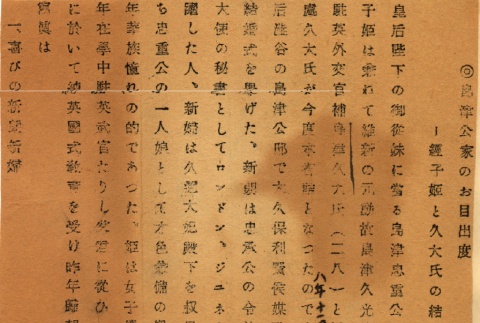 ◎島津公家のお目出度
ー經子姫と久大氏の結
皇后陛下の御從妹に當る島津忠重公
子姫は兼ねて維新の元勳故島津久光
駐英外交官補島津久大氏(二八)と
處久大氏が今度本省詰となつたので
八年十二
后澁谷の島津公邸で大久保利賢侯媒
結婚式を擧げた、新郎は忠承公の令
大使の秘書としてロンドン、ジユネ
躍した人、新婦は久邇大妃殿下を叔
ち忠重公の一人娘として才色兼備の
年華族憧れの的であつた、姫は女子
年在學中駐英武官たりし父君に從ひ
に於いて純英國式教育を受け昨年歸
寫眞は
一、喜びの新郎新婦